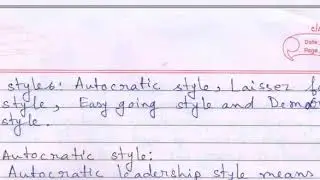 Date
Page
styles: Autocratic style, Laissez
style, Easy going style and Demo
style.
Autocratic style:
Autocratic leadership style means